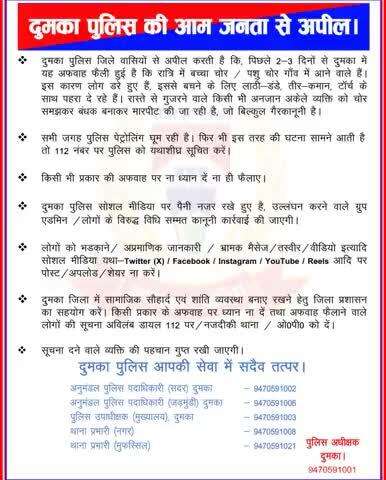 दुमका पुलिस की आम जनता से अपील।
❖ दुमका पुलिस जिले वासियों से अपील करती है कि, पिछले 2–3 दिनों से दुमका में
यह अफवाह फैली हुई है कि रात्रि में बच्चा चोर / पशु चोर गाँव में आने वाले हैं।
इस कारण लोग डरे हुए हैं, इससे बचने के लिए लाठी–डंडे, तीर–कमान, टॉर्च के
साथ पहरा दे रहे हैं। रास्ते से गुजरने वाले किसी भी अनजान अकेले व्यक्ति को चोर
समझकर बंधक बनाकर मारपीट की जा रही है, जो बिल्कुल गैरकानूनी है।
❖ सभी जगह पुलिस पेट्रोलिंग घूम रही है। फिर भी इस तरह की घटना सामने आती है
तो 112 नंबर पर पुलिस को यथाशीघ्र सूचित करें।
❖ किसी भी प्रकार की अफवाह पर ना ध्यान दें ना ही फैलाए।
❖ दुमका पुलिस सोशल मीडिया पर पैनी नजर रखे हुए है, उल्लंघन करने वाले ग्रुप
एडमिन /लोगों के विरुद्ध विधि सम्मत कानूनी कार्रवाई की जाएगी।
❖ लोगों को भडकाने/ अप्रमाणिक जानकारी / भ्रामक मैसेज/तस्वीर/वीडियो इत्यादि
सोशल मीडिया यथा–Twitter (X) / Facebook / Instagram / YouTube / Reels आदि पर
पोस्ट/अपलोड/शेयर ना करें।
❖ दुमका जिला में सामाजिक सौहार्द एवं शांति व्यवस्था बनाए रखने हेतु जिला प्रशासन
का सहयोग करें। किसी प्रकार के अफवाह पर ध्यान ना दें तथा अफवाह फैलाने वाले
लोगों की सूचना अविलंब डायल 112 पर/नजदीकी थाना / ओ0पी0 को दें।
❖ सूचना देने वाले व्यक्ति की पहचान गुप्त रखी जाएगी।
दुमका पुलिस आपकी सेवा में सदैव तत्पर।
अनुमंडल पुलिस पदाधिकारी (सदर) दुमका – 9470591002
अनुमंडल पुलिस पदाधिकारी (जरमुंडी) दुमका – 9470591006
पुलिस उपाधीक्षक (मुख्यालय), दुमका – 9470591003
थाना प्रभारी (नगर) – 9470591008
थाना प्रभारी (मुफस्सिल) – 9470591021
पुलिस अधीक्षक
दुमका।
9470591001